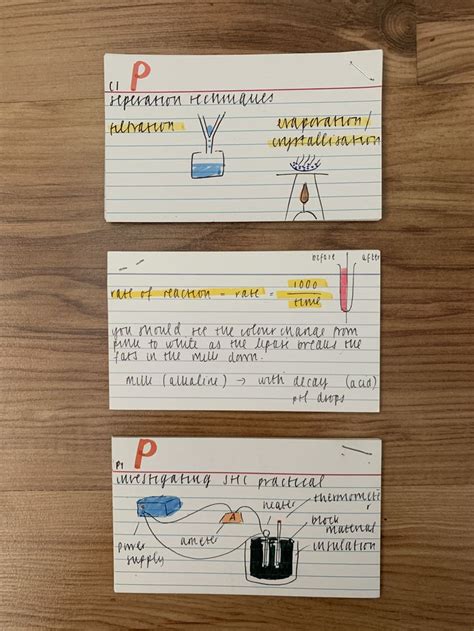 C1 P
seperation techniques
filtration
evaporation/
crystallisation
before after
rate of reaction = rate = 1000
time
you should see the colour change from
pink to white as the lipase breaks the
fats in the milk down.
milk (alkaline) → with decay (acid)
pH drops
P1 P
investigating SHC practical
heater
thermometer
A
block
material
power
supply
ameter
insulation